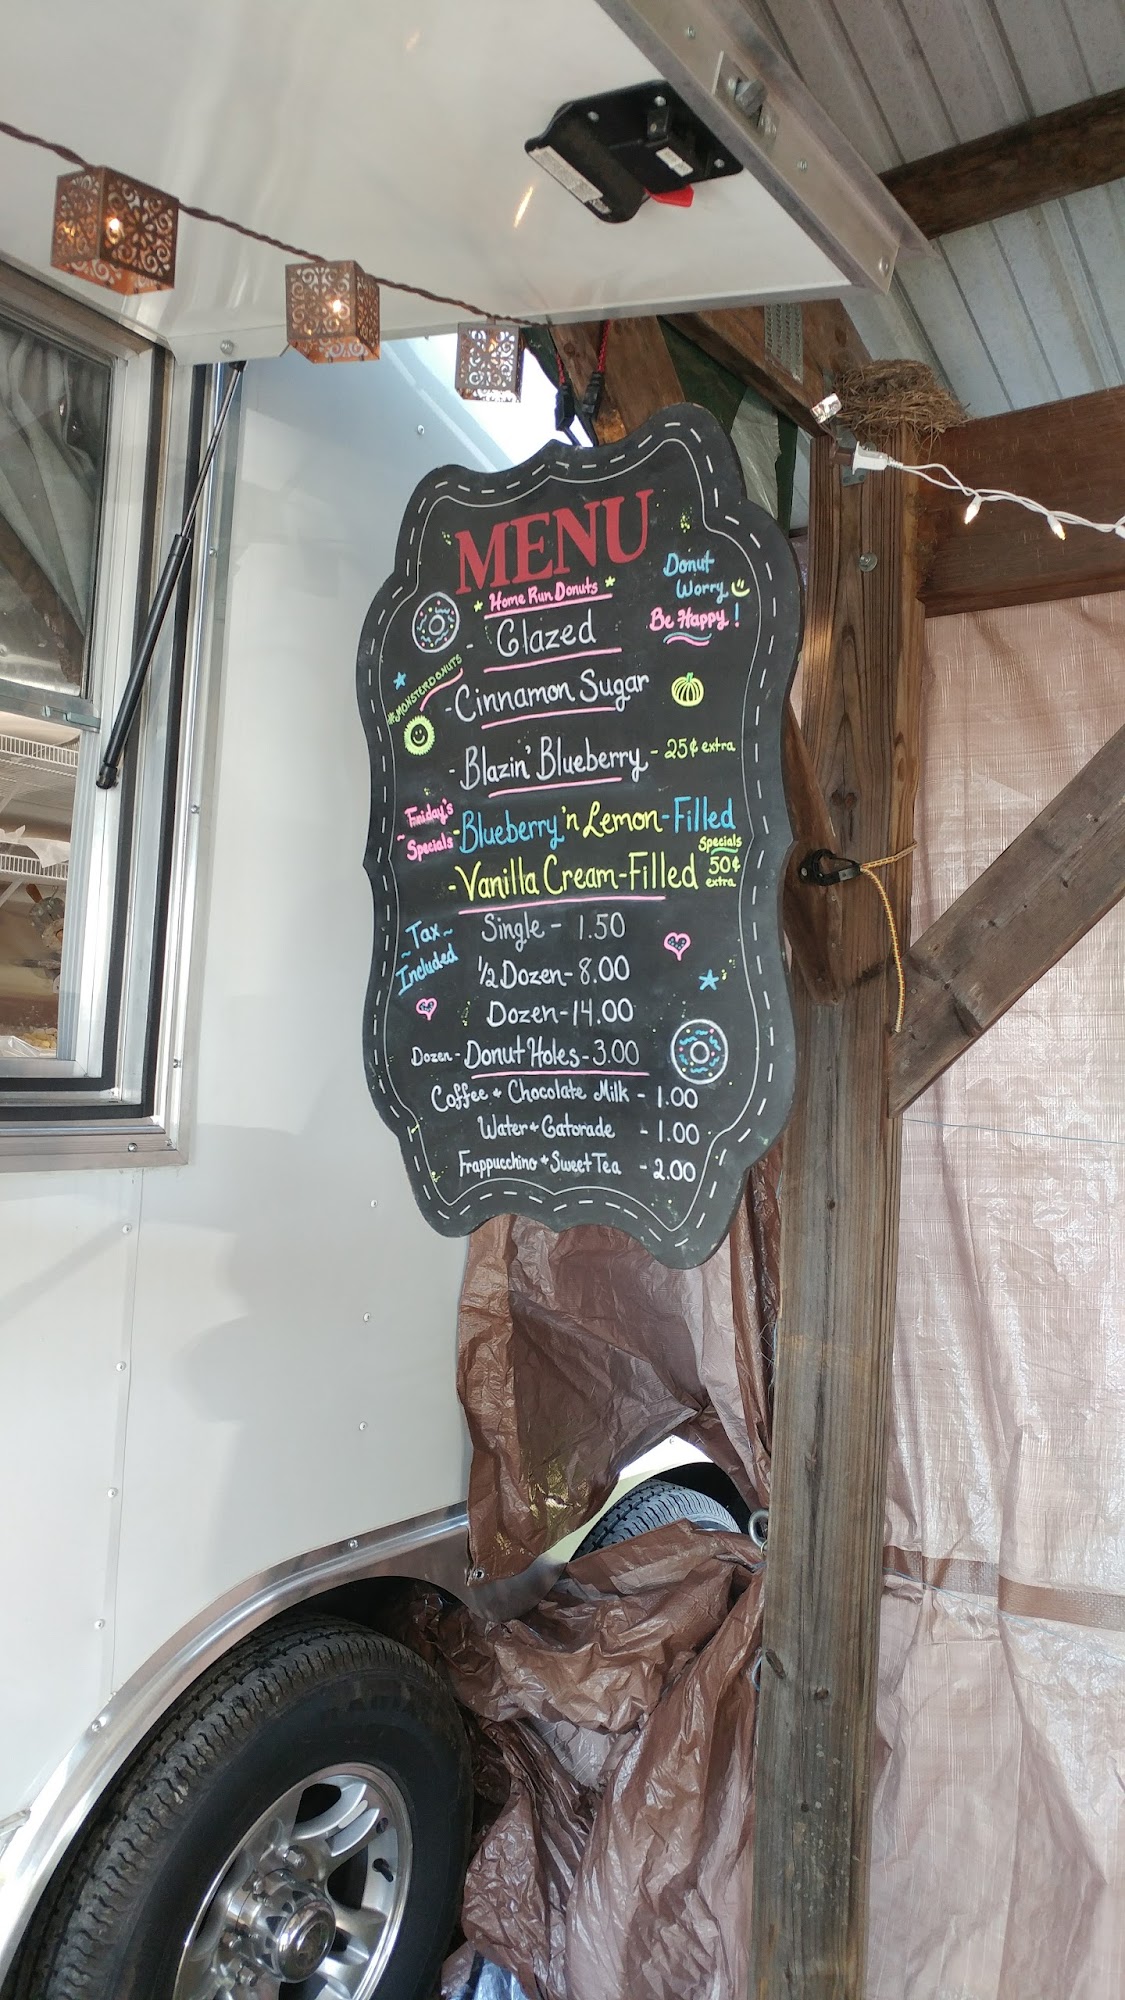 MENU
* Home Run Donuts *
Donut
Worry
Be Happy!
- Glazed
#MONSTERDONUTS
- Cinnamon Sugar
- Blazin' Blueberry - 25¢ extra
Friday's
~ Specials ~
- Blueberry 'n Lemon-Filled
- Vanilla Cream-Filled
Specials
50¢
extra
~ Tax ~
~ Included
Single - 1.50
1/2 Dozen - 8.00
Dozen - 14.00
Dozen - Donut Holes - 3.00
Coffee + Chocolate Milk - 1.00
Water + Gatorade - 1.00
Frappucchino + Sweet Tea - 2.00